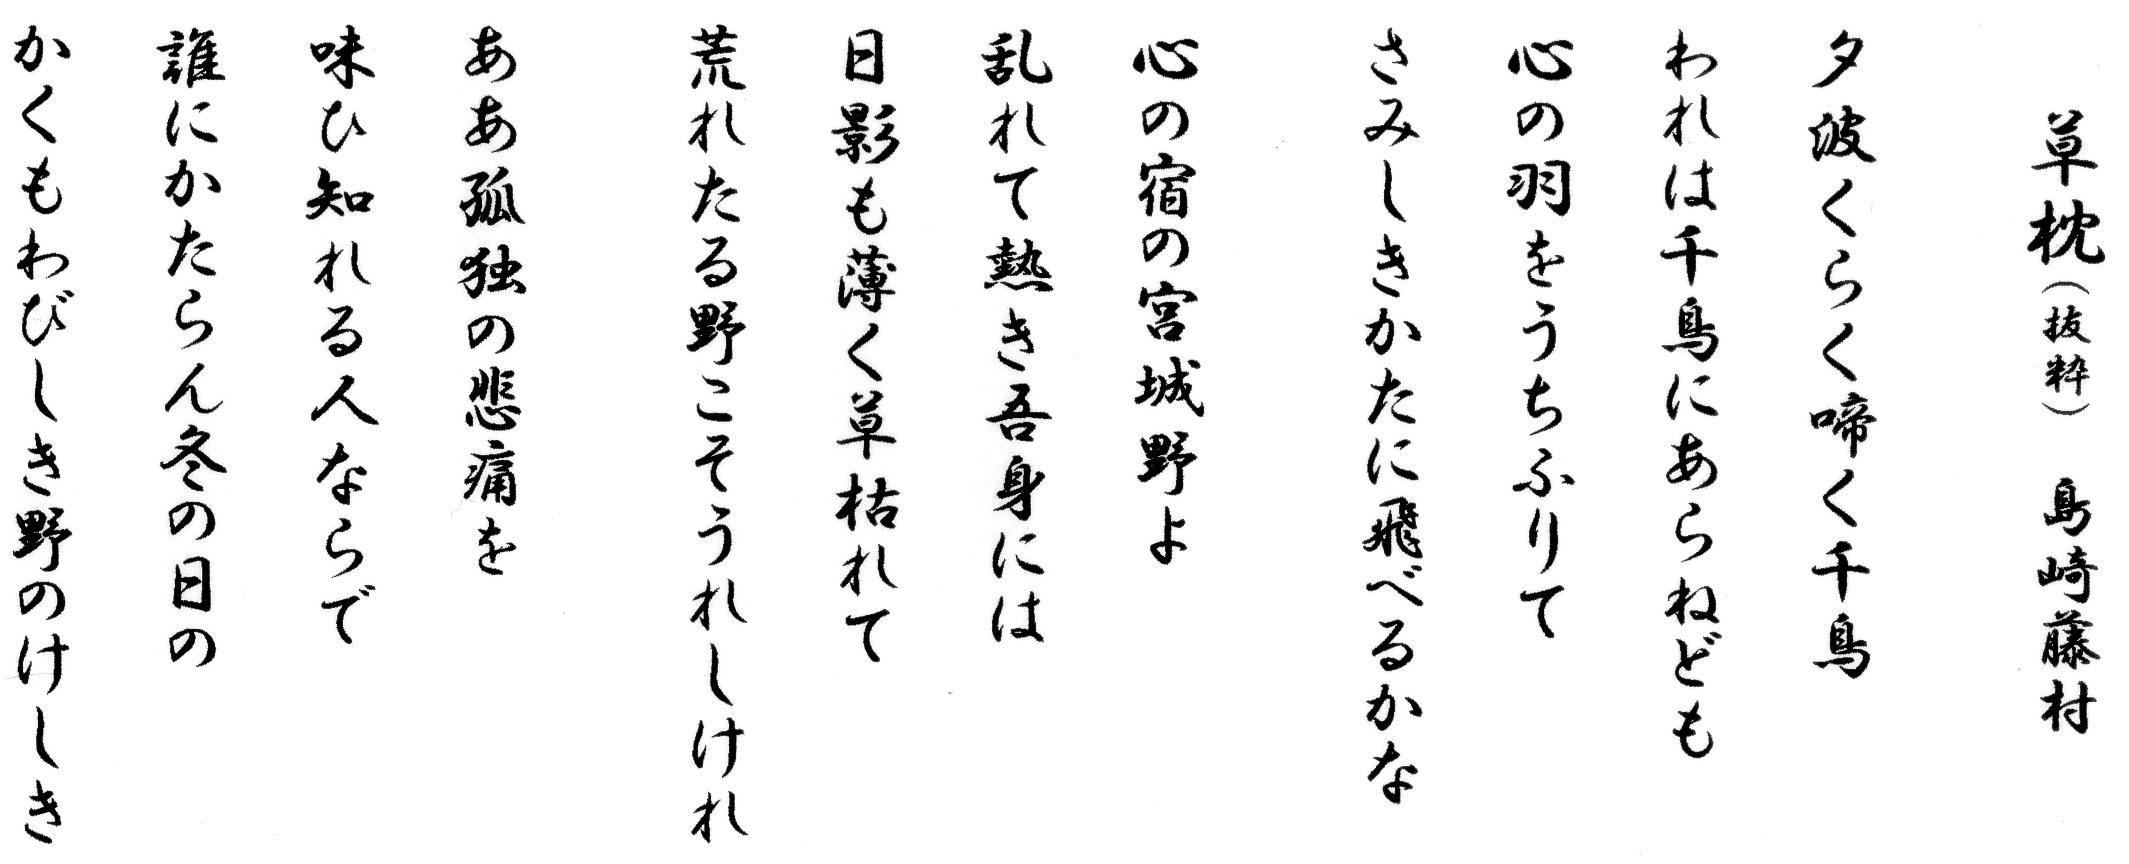 草枕（抜粋）　島崎藤村
夕波くらく啼く千鳥
われは千鳥にあらねども
心の羽をうちふりて
さみしきかたに飛べるかな
心の宿の宮城野よ
乱れて熱き吾身には
日影も薄く草枯れて
荒れたる野こそうれしけれ
ああ孤独の悲痛を
味ひ知れる人ならで
誰にかたらん冬の日の
かくもわびしき野のけしき